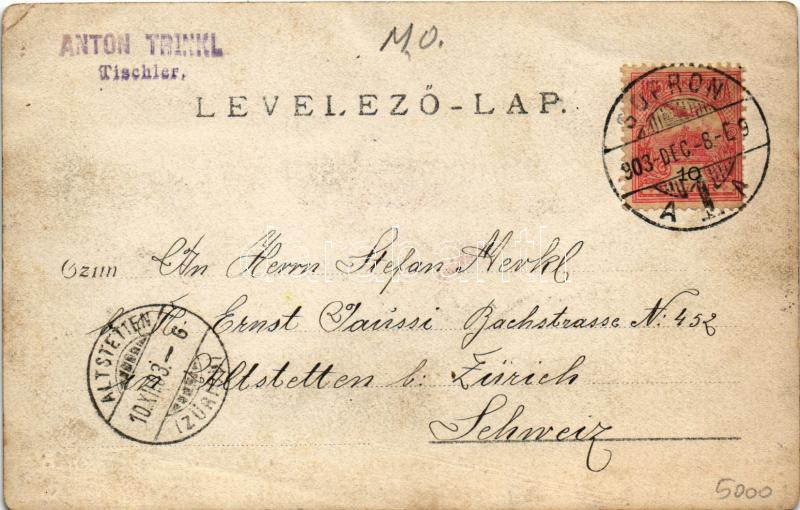 ANTON TRINKL
Tischler,
M,O.
LEVELEZŐ-LAP.
SOPRON
903-DEC.-8-E9
10
A
Czim An Herrn Stefan Merkl
b. H. Ernst Taussi Bachstrasse № 452
in Altstetten b. Zürich
Schweiz
ALTSTETTEN
10.XII.03.-6
(ZÜRICH)
5000